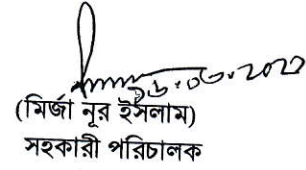 ১৬.০৩.২০২২
(মির্জা নূর ইসলাম)
সহকারী পরিচালক